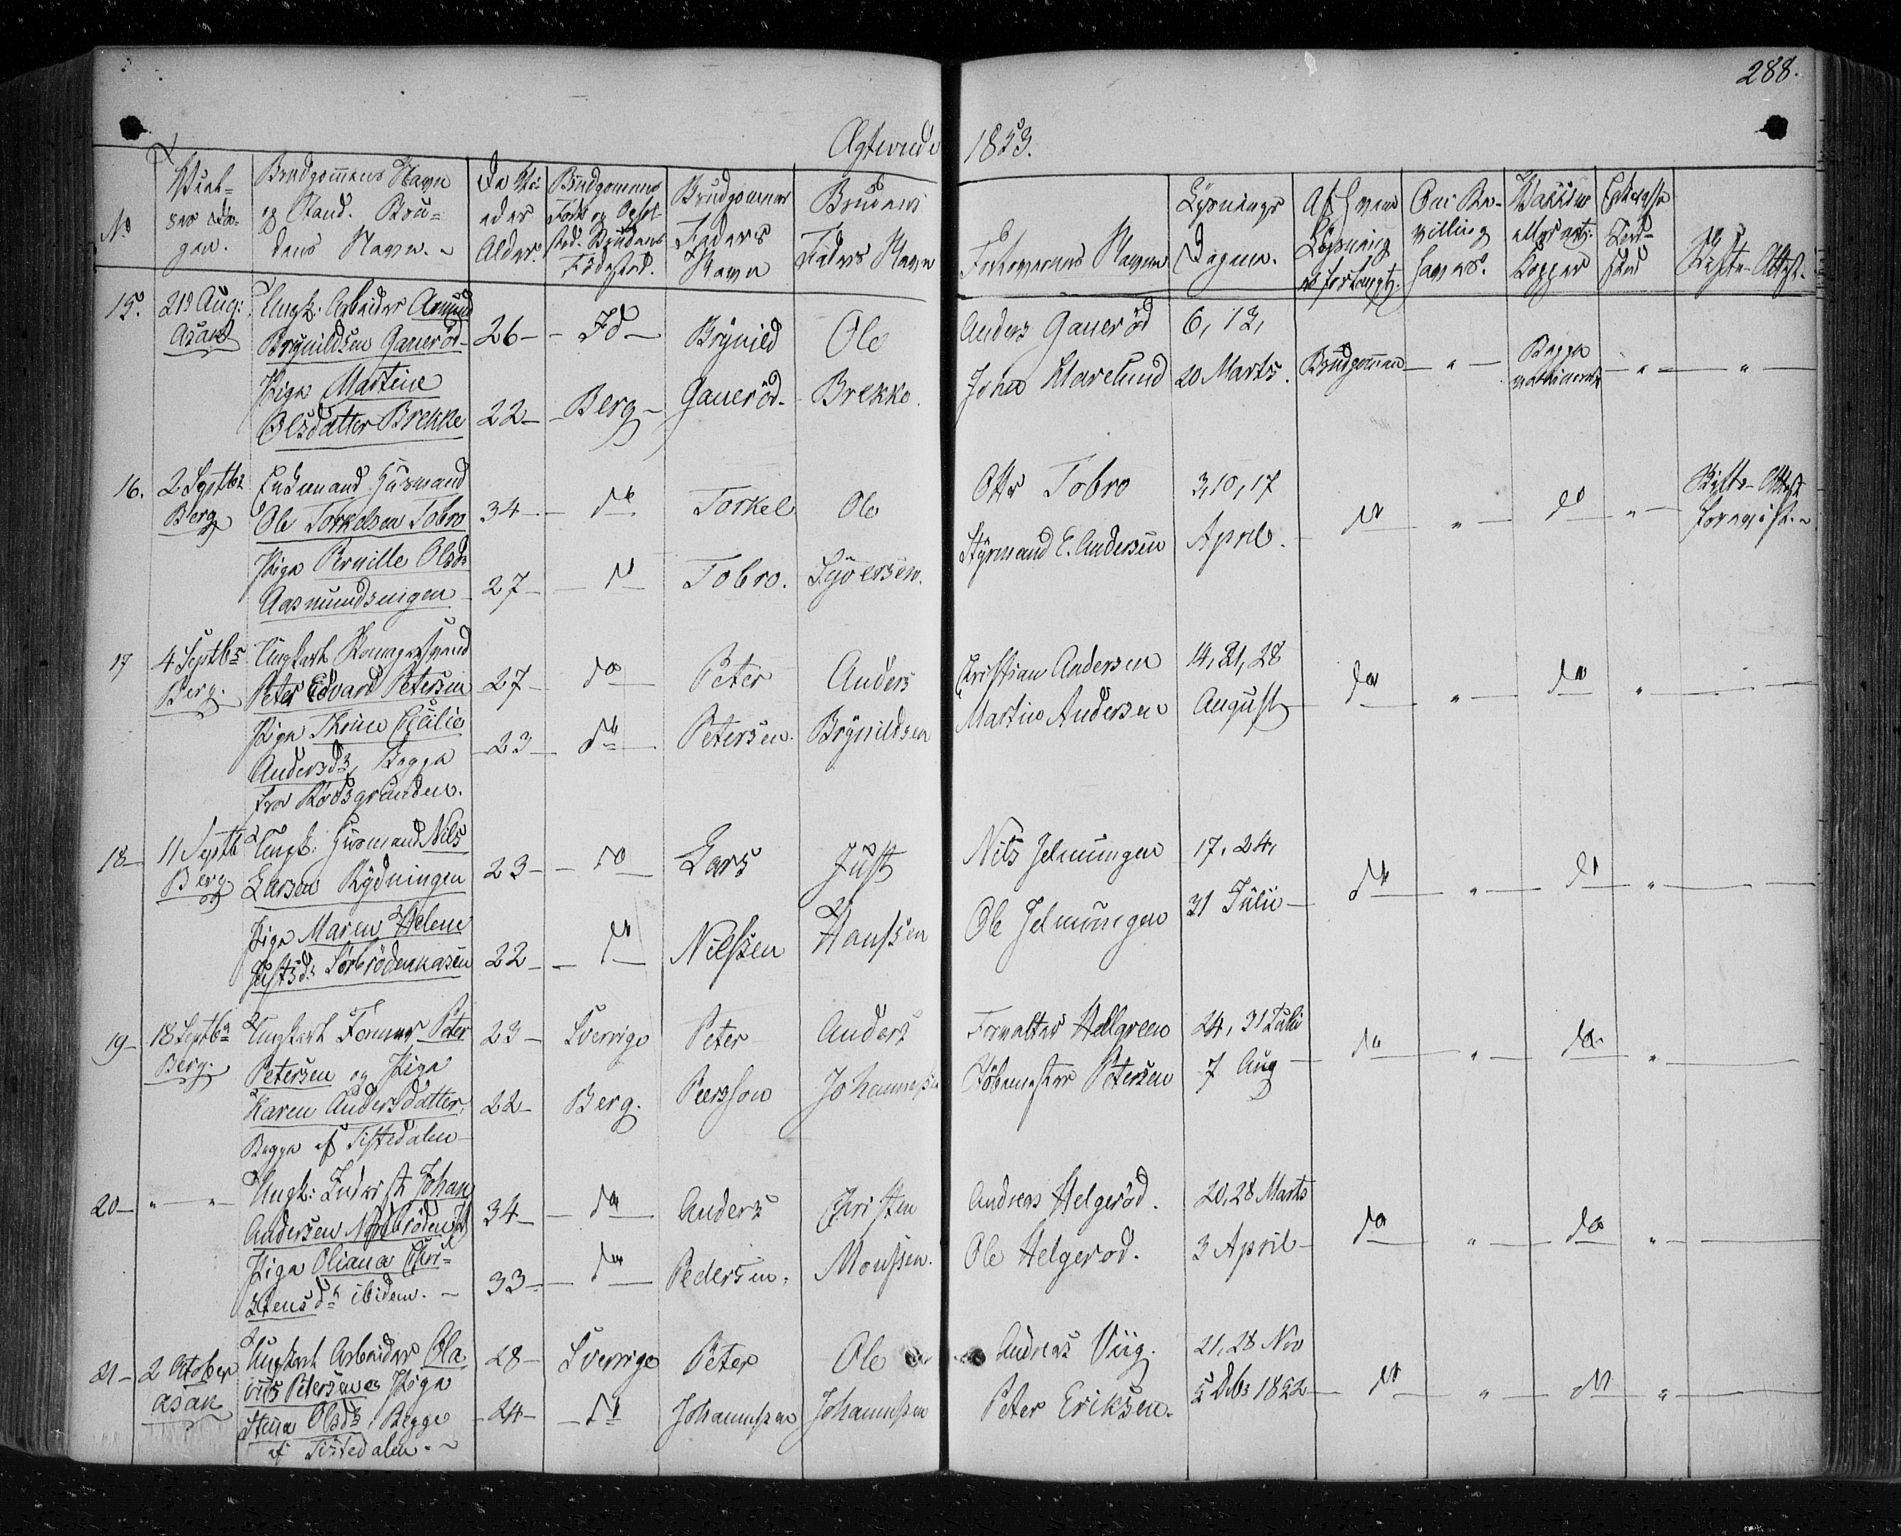 288.
Ægteviede 1853.
No
Viel-
ses Da-
gen.
Brudgommens Navn
og Stand. Bru-
dens Navn.
De Vi-
edes
Alder.
Brudgommens
Føde og Opholds-
sted. Brudens
Fødested.
Brudgommens
Faders
Navn
Brudens
Faders Navn
Forlovernes Navne
Lysnings
Dagene.
Af hvem
Lysning
er forlangt.
Om Be-
villing
haves.
Vaccine
eller nat:
Kopper
Skifte-Attest.
15. 21 Aug: Asak
Ungk: Arbeider Amund
Brynildsen Gauerød 26 - Id - Brynild Ole
Pige Martine
Olsdatter Brekke 22 - Berg - Gauerød - Brekke.
Anders Gauerød 6, 13,
Johan Klarelund 20 Marts. Brudgommen - " - Begge vaccinerede - " - "
16. 2 Septbr Berg
Enkemand Husmand
Ole Torkelsen Tobro 34 - do Torkel Ole
Pige Pernille Olsdr
Aasmundsengen 27 - do Tobro. Syversen.
Otto Tobro 3, 10, 17
Styrmand E. Andersen April. do " do " Skifte-Attest
forevist.
17 4 Septbr Berg.
Ungkarl
Peter Edvard Petersen 27 - do Peter Anders
Pige Thrine Cecilie
Andersdr, Begge
fra Rødsgrunden. 23 - do Petersen. Brynildsen
Christian Andersen 14, 21, 28
Martin Andersen August do " do "
18 - 11 Septb Berg
Ungk: Husmand Nils
Larsen Rydningen 23 - do Lars Just
Pige Maren Helene
Justsdr Sørbrødenkasen 22 - do Nilssen Hanssen
Nils Jelmungen 17, 24,
Ole Jelmungen 31 Julii do " do "
19 - 18 Septbr Berg.
Ungkarl Former Peter
Petersen og Pige
Karen Andersdatter,
Begge af Tistedalen 23 - Sverrige Peter Anders
22 - Berg. Persson Johannessen
Forvalter Hellgreen 24, 31 Julii
Petersen 7 Aug do " do "
20 - " "
Ungk: Inderst Johan
Andersen Norbrøden 34 - do Anders Christen
Pige Oliana Chri-
stensdr ibidem. 33 - do Pedersen, Monssen.
Andreas Helgerød. 20, 28 Marts
Ole Helgerød. 3 April do " do "
21 - 2 October Asak
Ungkarl Arbeider Ola
Petersen og Pige
Stina Olsdr, Begge
af Tistedalen. 28 - Sverrige Peter Ole
24 - do Johannessen Johannessen
Andreas Viig. 21, 28 Nov
Peter Eriksen. 5 Debr 1852 do " do "